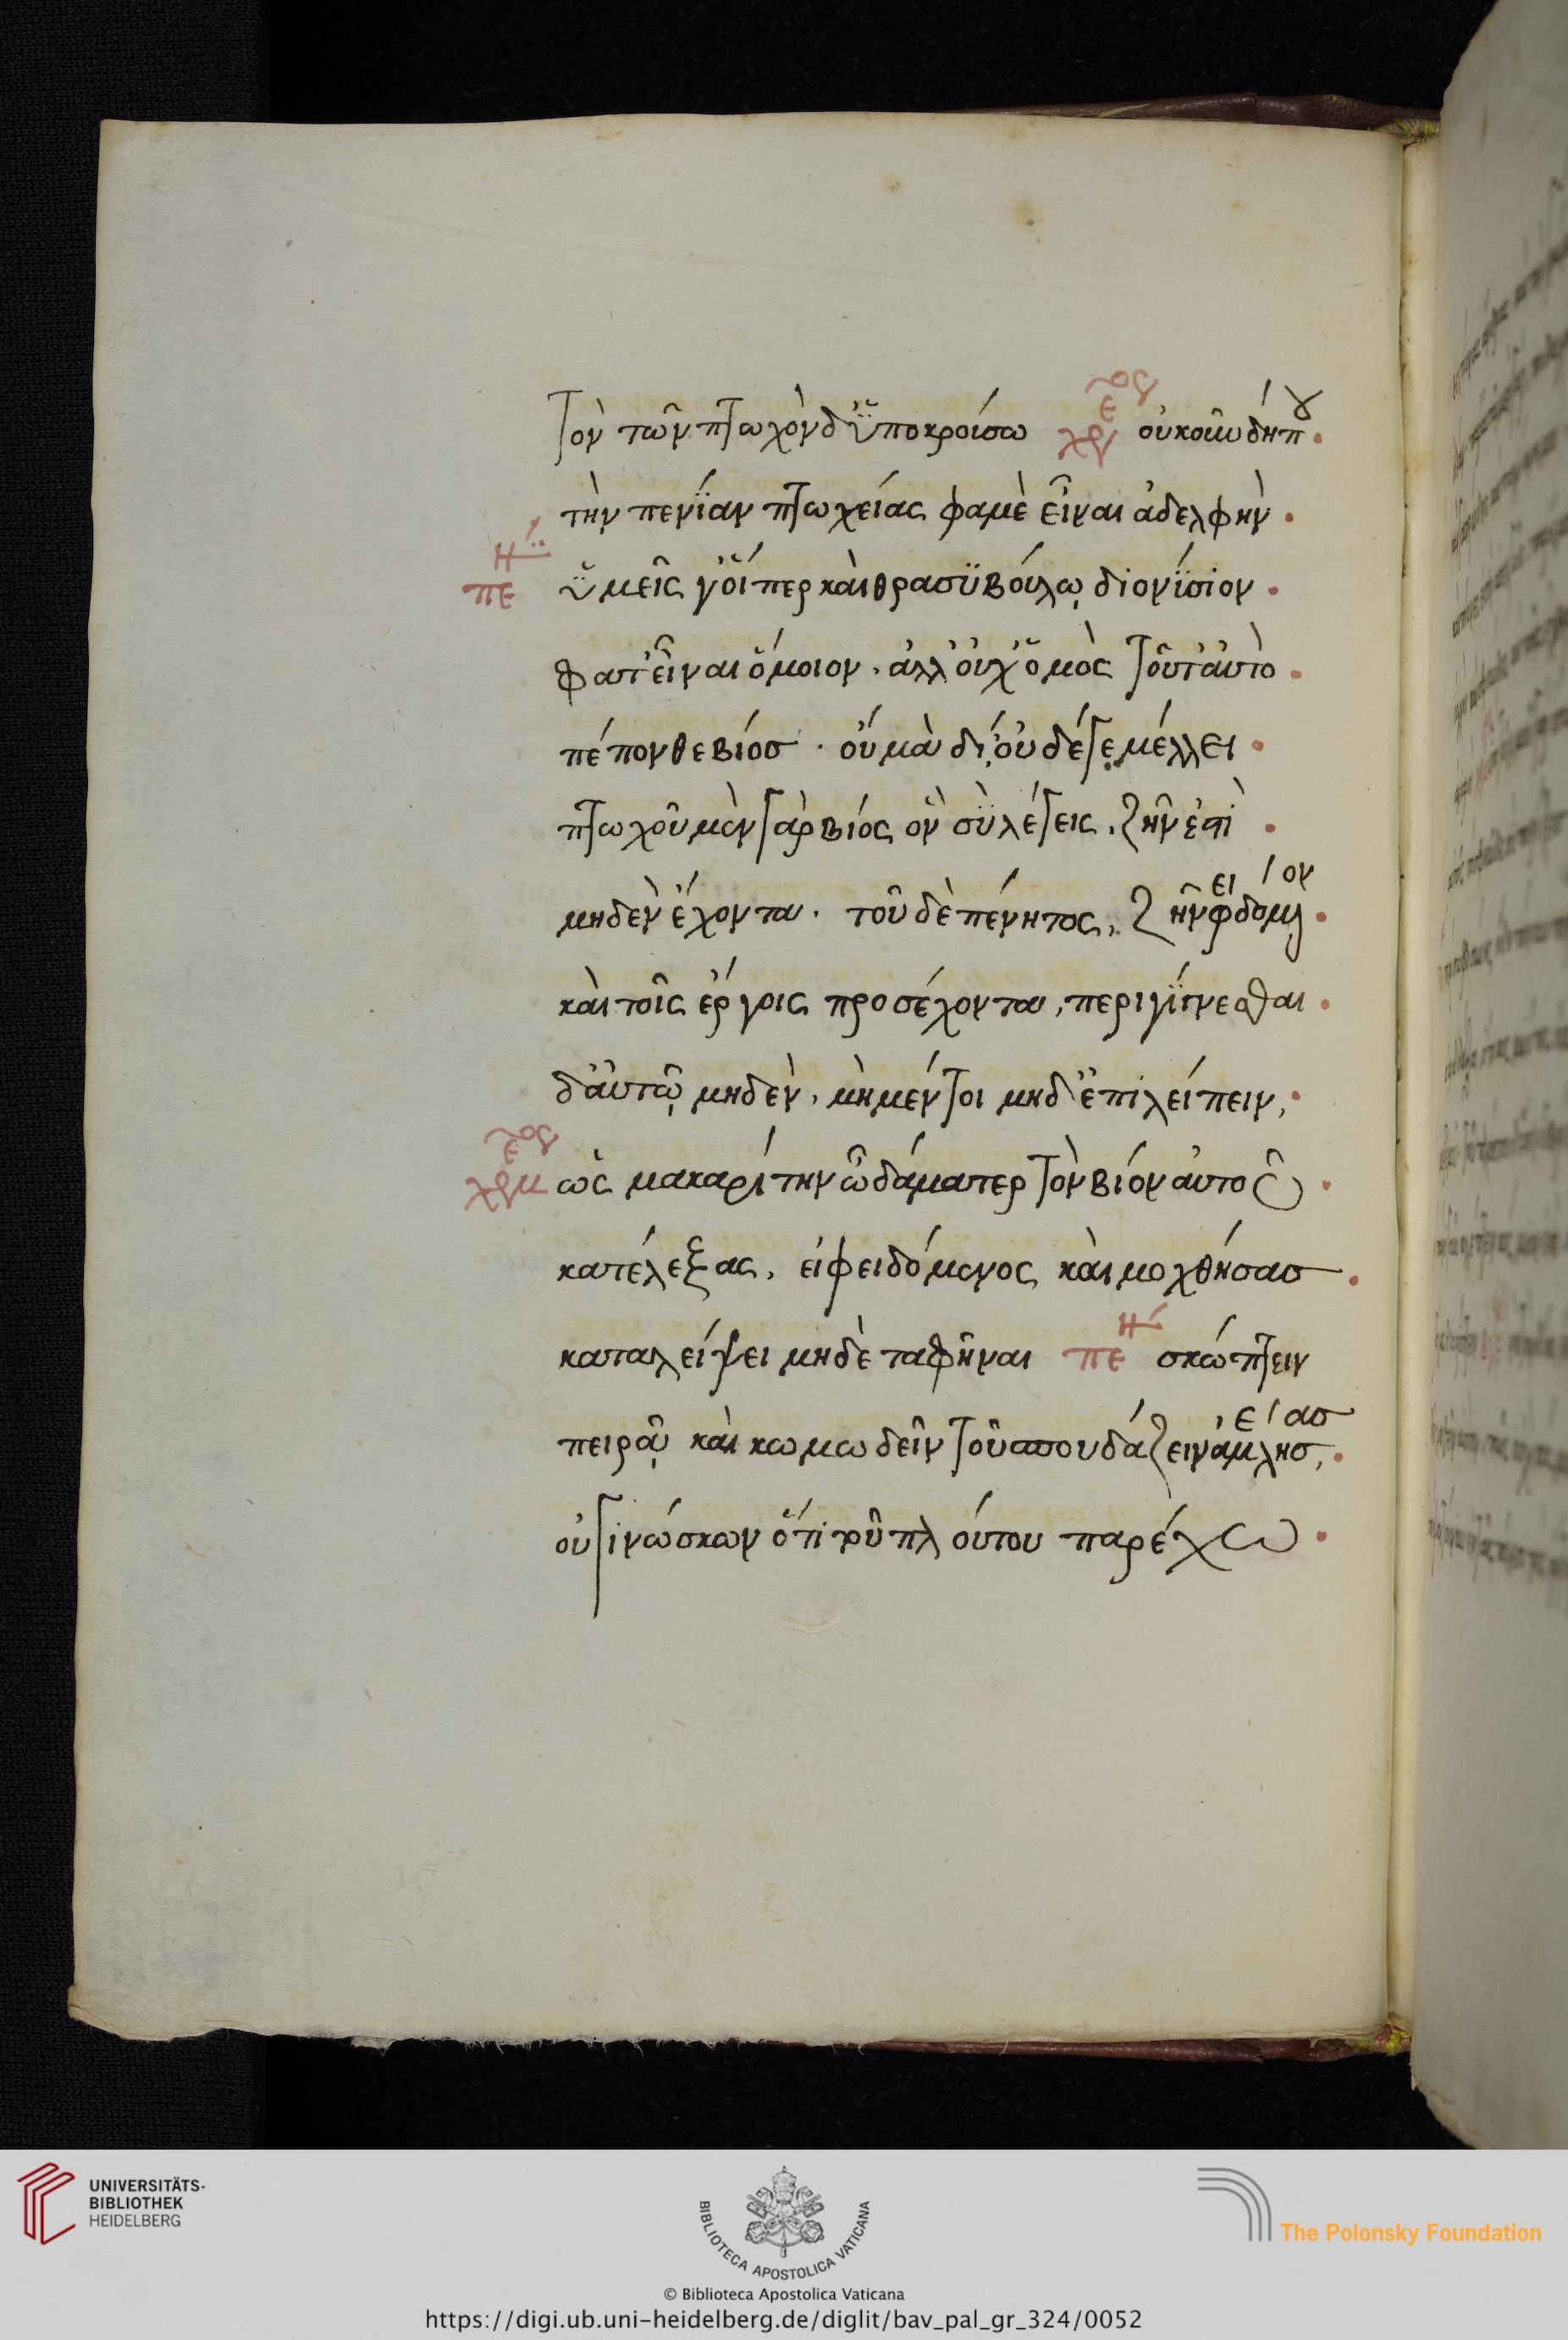 τὸν τῶν πτωχῶν δ' ὑπεκρούσω χρε οὐκοῦν δήπου
τὴν πενίαν πτωχείας φαμὲν εἶναι ἀδελφὴν.
πε ὑμεῖς γ' οἵπερ καὶ θρασϋβούλω διονύσιον.
φατ' εἶναι ὅμοιον. ἀλλ' οὐχ' ὁ μὸς τοῦτ' αὐτὸ.
πέπονθε βίοσ. οὐ μὰ δί, οὐδέγε μέλλει.
πτωχοῦ μὲν γὰρ βίος ὃν σὺ λέγεις, ζῆν ἐστὶ.
μηδὲν ἔχοντα. τοῦ δὲ πένητος, ζῆν φειδόμενον.
καὶ τοῖς ἔργοις προσέχοντα, περιγίγνεσθαι.
δ' αὐτῷ μηδὲν, μὴ μέντοι μηδ' ἐπιλείπειν,.
χρεμ ὡς μακαρίτην ὦ δάματερ τὸν βίον αὐτοῦ.
κατέλεξας, εἰ φειδόμενος καὶ μοχθήσασ.
καταλείψει μηδὲ ταφῆναι πε σκώπτειν
πειρᾷ καὶ κωμωδεῖν τοῦ σπουδάζειν ἀμελήσας,.
οὐ γινώσκων ὅτι τοῦ πλούτου παρέχω.
UNIVERSITÄTS-
BIBLIOTHEK
HEIDELBERG
BIBLIOTECA APOSTOLICA VATICANA
The Polonsky Foundation
© Biblioteca Apostolica Vaticana
https://digi.ub.uni-heidelberg.de/diglit/bav_pal_gr_324/0052